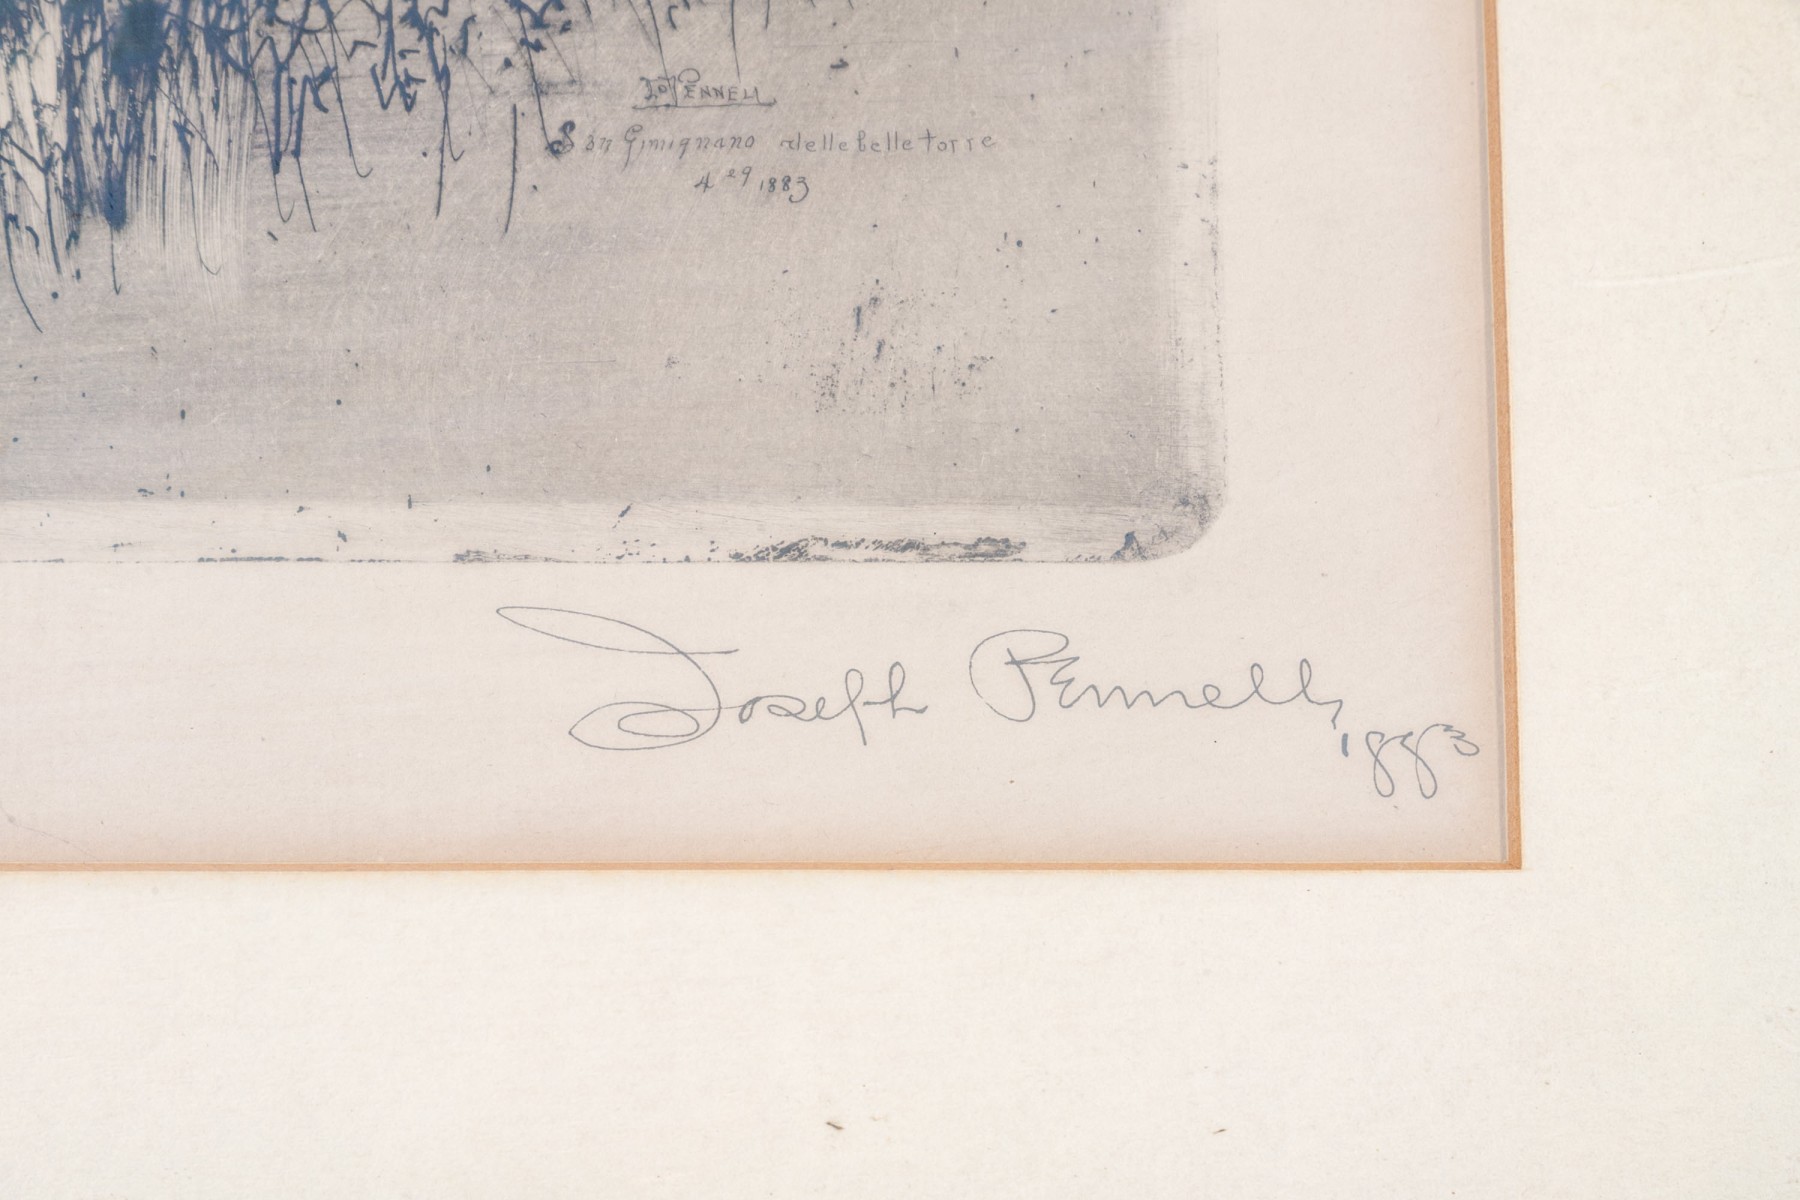 Jo Pennell
San Gimignano delle belle torre
4 1883
Joseph Pennell,
1883